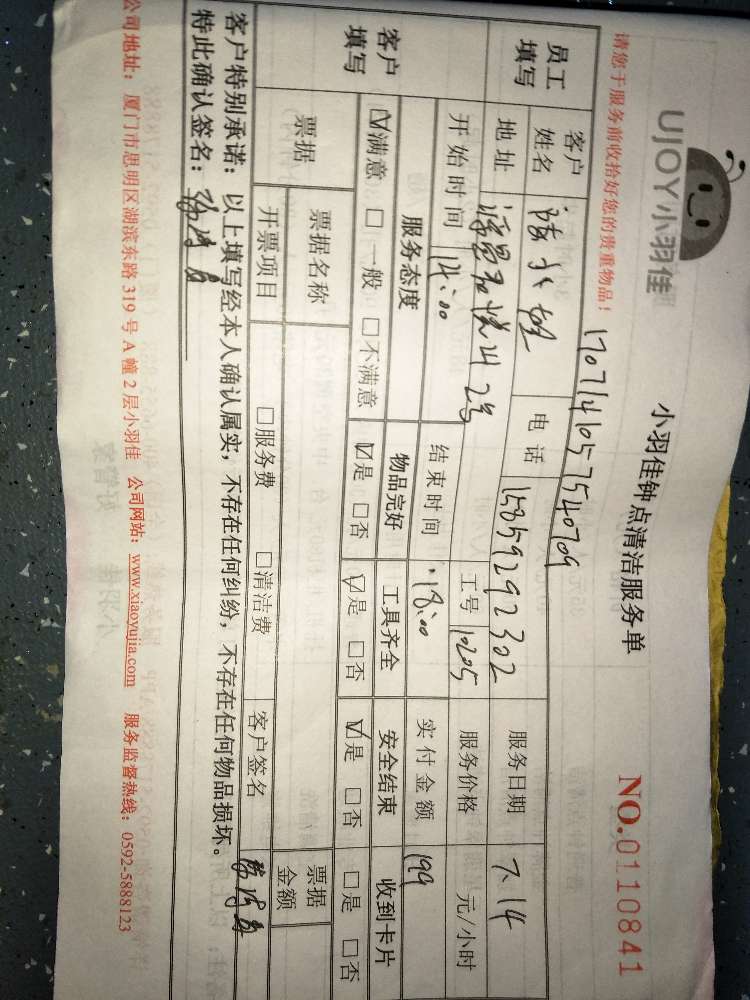 UJOY小羽佳
小羽佳钟点清洁服务单
NO.0110841
请您于服务前收拾好您的贵重物品！
1707141057540709
员工填写
客户姓名
电话 15859292302
服务日期 7.14
地址 2号
工号 10205
服务价格 元/小时
开始时间 14:00
结束时间 18:00
实付金额 199
客户填写
服务态度 物品完好 工具齐全 安全结束 收到卡片
☑满意 □一般 □不满意 ☑是 □否 ☑是 □否 ☑是 □否 □是 □否
票据 票据名称 票据金额
开票项目 □服务费 □清洁费 客户签名
客户特别承诺：以上填写经本人确认属实，不存在任何纠纷，不存在任何物品损坏。
特此确认签名：
公司地址：厦门市思明区湖滨东路319号A幢2层小羽佳 公司网站：www.xiaoyujia.com 服务监督热线：0592-5888123